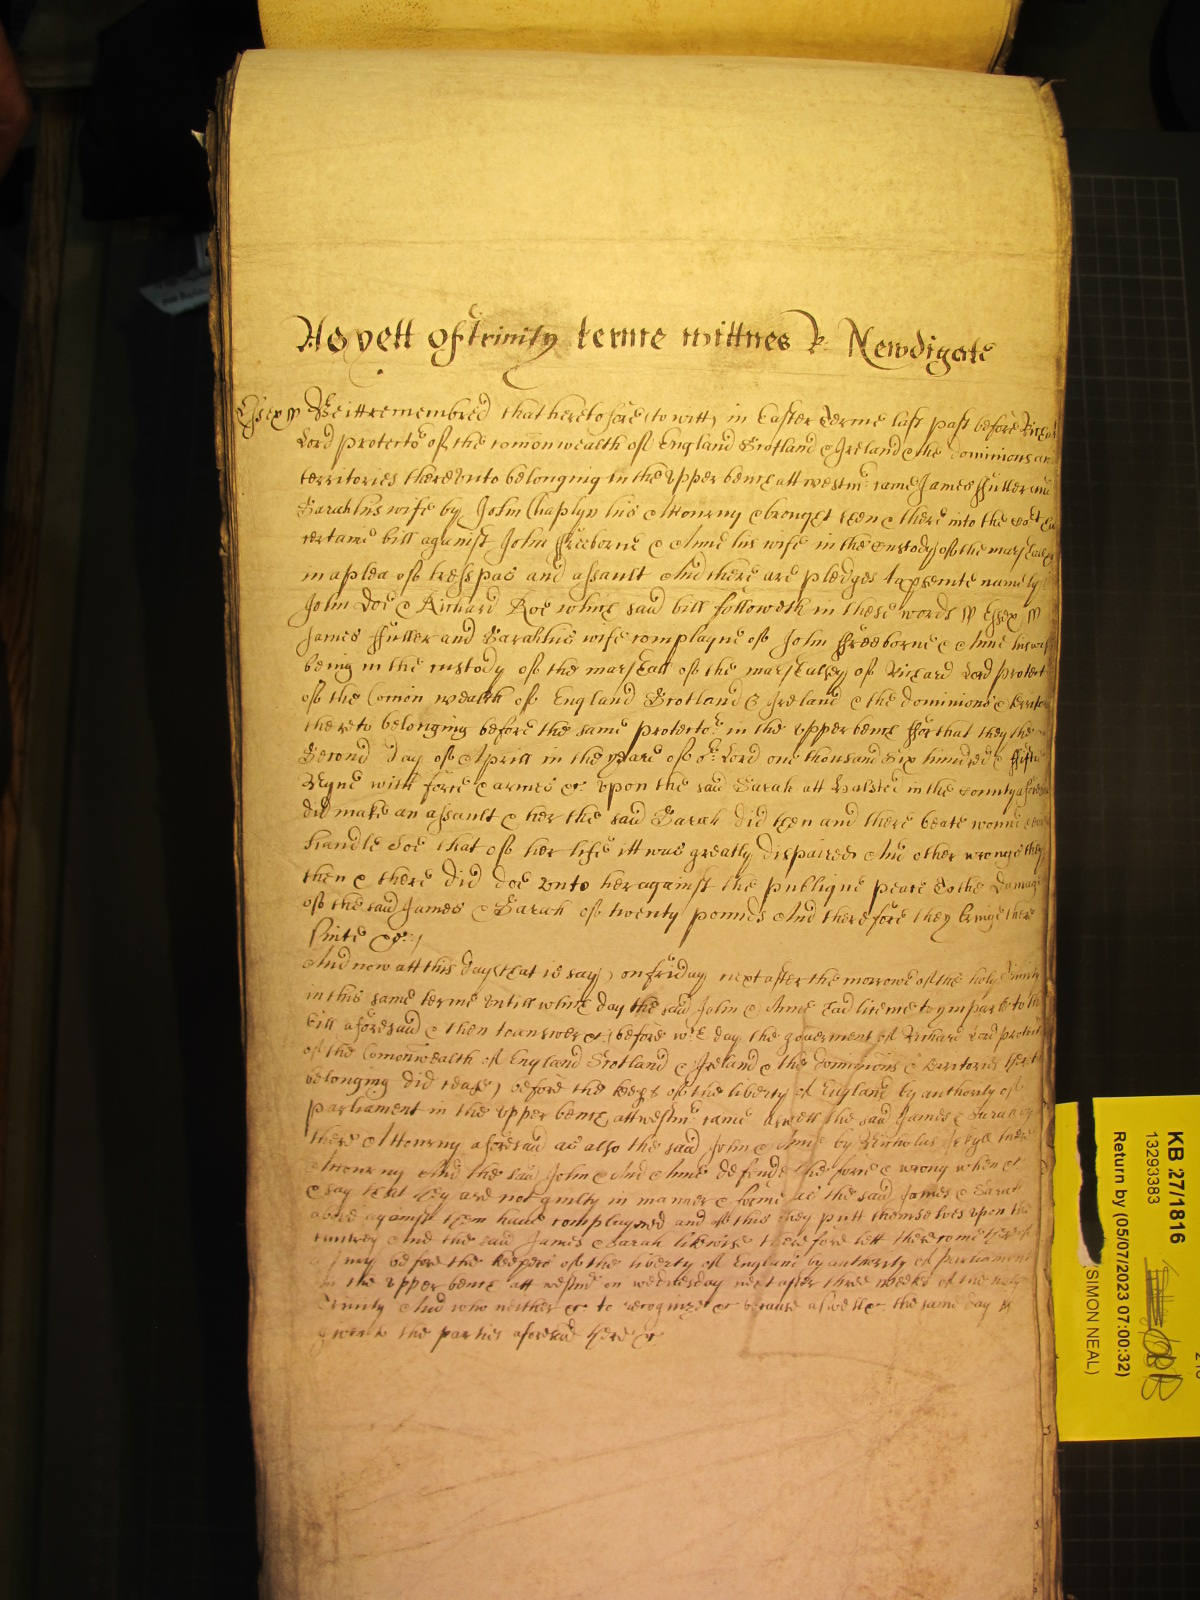 As yett of Trinity terme wittnes R: Newdigate
Essex ss Be itt remembred that heretofore (to witt) in Easter Terme last past before Richard
Lord protector of the comonwealth of England Scotland & Ireland & the dominions and
territories thereunto belonging in the upper bench att westmr: came James Fuller and
Sarah his wife by John Chaplyn his Attourny & brought then & there into the Court
certaine bill against John Freeborne & Anne his wife in the custody of the marshall
in a plea of tresspas and assault And there are pledges to prosecute namely
John Doe & Richard Roe which said bill followeth in these words ss Essex ss
James Fuller and Sarah his wife complayne of John Freeborne & Anne his wife
being in the custody of the marshall of the marshalsey of Richard Lord protector
of the Comon wealth of England Scotland & Ireland & the dominions & territories
thereto belonging before the same protector in the upper bench For that they the
Second day of Aprill in the yeare of or: Lord one thousand Six hundred & fiftie
Nyne with force & armes &c: upon the said Sarah att Halsted in the County aforesaid
did make an assault & her the said Sarah did then and there beate wound &
handle Soe that of her life itt was greatly dispaired And other wronges they
then & there did doe unto her against the publique peace To the Damage
of the said James & Sarah of twenty pounds And therefore they bringe there
Suite &c:/
And now att this day (that is say) on friday next after the morrowe of the holy Trinity
in this same terme Untill which day the said John & Anne had licence to imparle to the
bill aforesaid & then to answer &c (before wch day the goverment of Richard Lord protector
of the Comonwealth of England Scotland & Ireland & the dominions & territories thereto
belonging did cease) before the keeprs of the liberty of England by authority of
parliament in the upper bench att westmr: came aswell the said James & Sarah by
there Attourny aforesaid as also the said John & Anne by Nicholas Jekyll there
Attourny And the said John And Anne defende the force & wrong when &c
& say that they are not guilty in manner & forme as the said James & Sarah
above against them have complayned and of this they putt themselves upon the
cuntrey And the said James & Sarah likewise therefore lett there come thereof
a Jury before the keepers of the liberty of England by authority of parliament
in the upper bench att westmr on wednesday next after three weeks of the holy
Trinity And who neither &c to recognize &c because aswell &c the same day is
given to the parties aforesaid there &c
KB 27/1816
13293383
Return by (05/07/2023 07:00:32)
(SIMON NEAL)